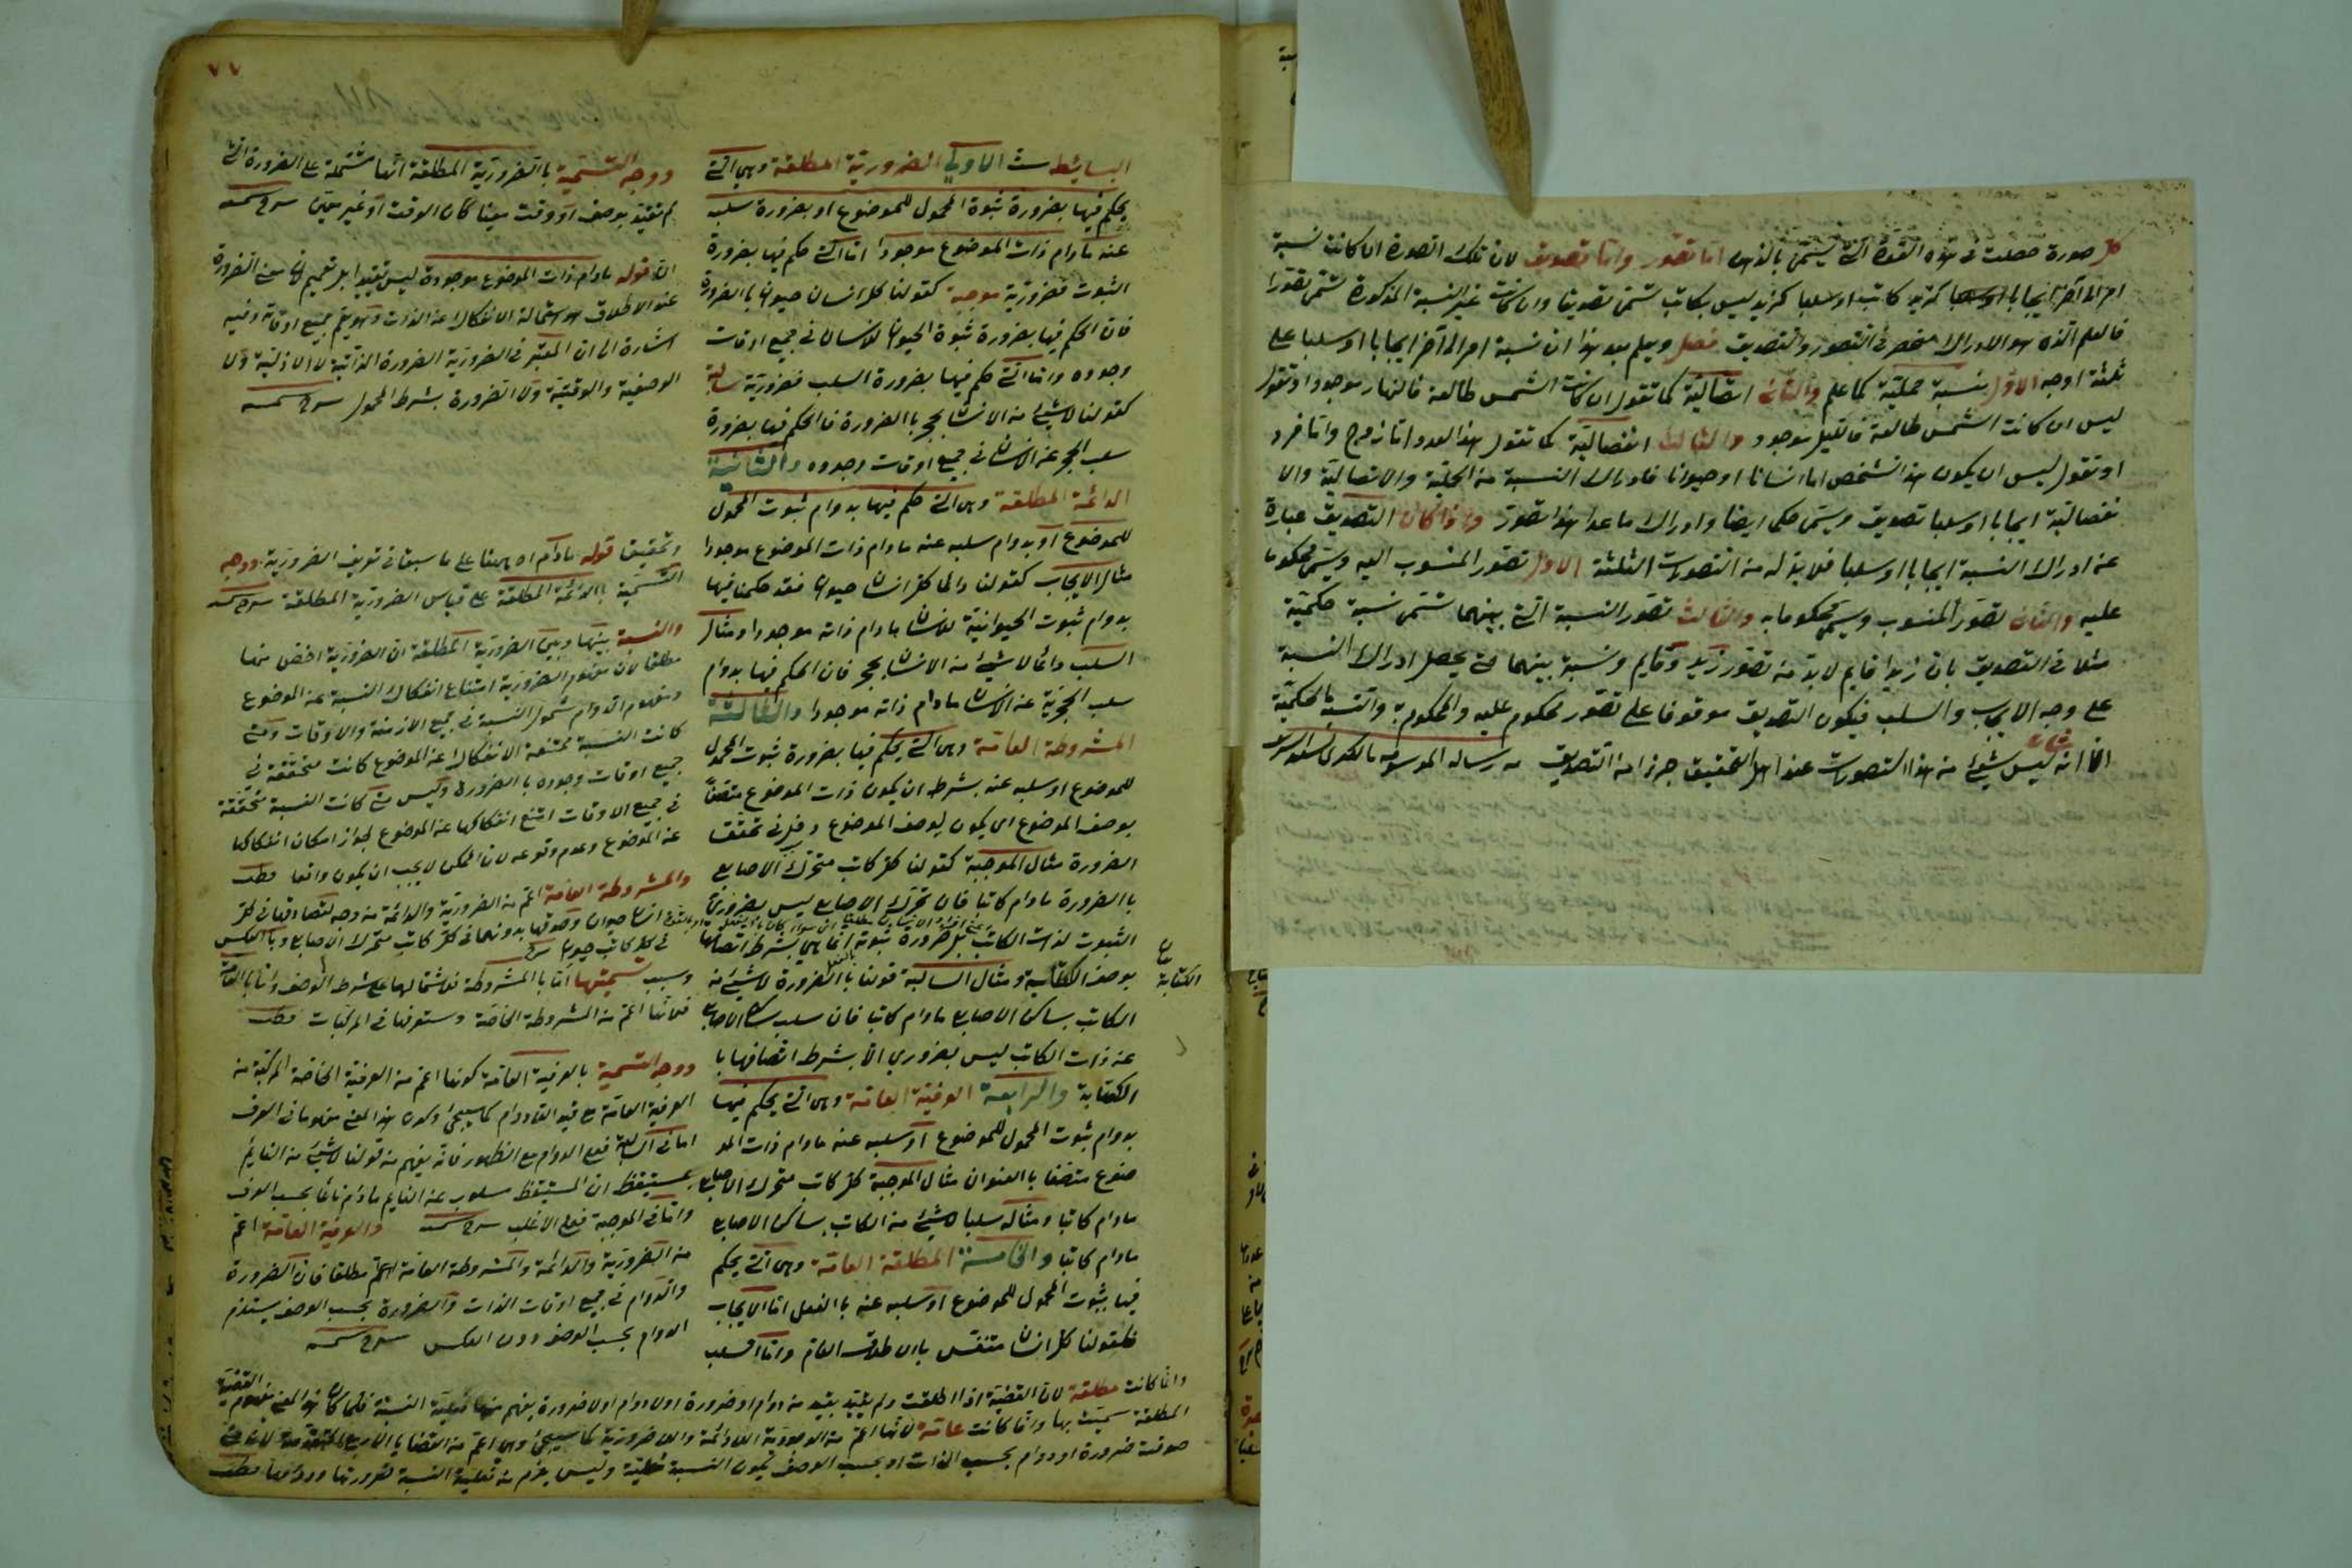 ٧٧
البسائط ست الاولى الضرورية المطلقة وهي التي
يحكم فيها بضرورة ثبوة المحمول للموضوع او بضرورة سلبه
عنه مادام ذات الموضوع موجودا اما التي حكم فيها بضرورة
الثبوت فضرورية موجبة كقولنا كل انسان حيوان باالضرورة
فان الحكم فيها بضرورة ثبوة الحيوان للانسان في جميع اوقات
وجوده واما التي حكم فيها بضرورة السلب فضرورية سالبة
كقولنا لا شيئ من الانسان بحجر باالضرورة فاالحكم فيها بضرورة
سلب الحجر عن الانسان في جميع اوقات وجوده والثانية
الدائمة المطلقة وهي التي حكم فيها بدوام ثبوت المحمول
للموضوع او بدوام سلبه عنه مادام ذات الموضوع موجودا
مثال الايجاب كقولنا دائما كل انسان حيوان فقد حكمنا فيها
بدوام ثبوت الحيوانية للانسان مادام ذاته موجودا ومثال
السلب دائما لا شيئ من الانسان بحجر فان الحكم فيها بدوام
سلب الحجرية عن الانسان مادام ذاته موجودا والثالثة
المشروطة العامة وهي التي يحكم فيها بضرورة ثبوت المحمول
للموضوع او سلبه عنه بشرط ان يكون ذات الموضوع متصفا
بوصف الموضوع اي يكون لوصف الموضوع دخل في تحقق
الضرورة مثال الموجبة كقولنا كل كاتب متحرك الاصابع
باالضرورة مادام كاتبا فان تحرك الاصابع ليس بضروري
الثبوت لذات الكاتب بل ضرورة ثبوته انما هي بشرط اتصافها
بوصف الكتابة ومثال السالبة قولنا باالضرورة لا شيئ من
الكاتب بساكن الاصابع مادام كاتبا فان سلب ساكن الاصابع
عن ذات الكاتب ليس بضروري الا بشرط اتصافها با
الكتابة والرابعة العرفية العامة وهي التي يحكم فيها
بدوام ثبوت المحمول للموضوع او سلبه عنه مادام ذات المو
ضوع متصفا باالعنوان مثال الموجبة كل كاتب متحرك الاصابع
مادام كاتبا ومثاله سلبا لا شيئ من الكاتب بساكن الاصابع
مادام كاتبا والخامسة المطلقة العامة وهي التي يحكم
فيها بثبوت المحمول للموضوع او سلبه عنه باالفعل اما الايجاب
فكقولنا كل انسان متنفس بالاطلاق العام واما السلب
الكتابة
ووجه التسمية باالضرورية المطلقة انها مشتملة على الضرورة التي
لم تقيد بوصف او وقت معينا كان الوقت او غير معين
قوله مادام ذات الموضوع موجودة ليس تقييدا بل تعميم لان معنى الضرورة
عند الاطلاق هو استحالة الانفكاك عن الذات وهو يعم جميع اوقاته وفيه
اشارة الى ان المعتبر في الضرورية الضرورة الذاتية لا الازلية ولا
الوصفية والوقتية ولا الضرورة بشرط المحمول
وتحقيق قوله مادام اه ههنا على ما سبق في تعريف الضرورية ووجه
التسمية باالدائمة المطلقة على قياس الضرورية المطلقة
والنسبة بينها وبين الضرورية المطلقة ان الضرورية اخص منها
مطلقا لان مفهوم الضرورية امتناع انفكاك النسبة عن الموضوع
ومفهوم الدوام شمول النسبة في جميع الازمنة والاوقات ومتى
كانت النسبة ممتنعة الانفكاك عن الموضوع كانت متحققة في
جميع اوقات وجوده باالضرورة وليس متى كانت النسبة متحققة
في جميع الاوقات امتنع انفكاكها عن الموضوع لجواز امكان انفكاكها
عن الموضوع وعدم وقوعه لان الممكن لا يجب ان يكون واقعا
والمشروطة العامة اعم من الضرورية والدائمة من وجه لتصادقها في كل
انسان حيوان وصدقها بدونهما في كل كاتب متحرك الاصابع وباالعكس
في كل كاتب حيوان
وسبب تسميتها اما باالمشروطة فلاشتمالها على شرط الوصف واما باالعامة
فلانها اعم من المشروطة الخاصة وستعرفها في المركبات
ووجه التسمية بالعرفية العامة كونها اعم من العرفية الخاصة المركبة من
العرفية العامة مع قيد اللادوام كما سيجيئ وكون هذا المعنى مفهوما في العرف
اما في السالبة فمع الدوام مع الظهور فانه يفهم من قولنا لا شيئ من النائم
بمستيقظ ان المستيقظ مسلوب عن النائم مادام نائما بحسب العرف
واما في الموجبة فعلى الاغلب والعرفية العامة اعم
من الضرورية والدائمة والمشروطة العامة اعم مطلقا فان الضرورة
والدوام في جميع اوقات الذات والضرورة بحسب الوصف يستلزم
الدوام بحسب الوصف دون العكس
وانما كانت مطلقة لان القضية اذا اطلقت ولم يقيد بقيد من دوام او ضرورة او لا دوام او لا ضرورة يفهم منها فعلية النسبة فلما كان هذا المعنى مفهوم القضية
المطلقة سميت بها وانما كانت عامة لانها اعم من الوجودية اللادائمة واللاضرورية كما سيجيئ وهي اعم من القضايا الاربع المتقدمة لانه متى
صدقت ضرورة او دوام بحسب الذات او بحسب الوصف تكون النسبة فعلية وليس يلزم من فعلية النسبة ضرورتها ودوامها
كل صورة حصلت في هذه القوة التي يسمى بالذهن اما تصور واما تصديق لان تلك الصورة اما كانت نسبة
امر الى آخر ايجابا كزيد كاتب او سلبا كزيد ليس بكاتب تسمى تصديقا وان كانت غير النسبة المذكورة تسمى تصورا
فالعلم الذي هو الادراك منحصر في التصور والتصديق فصل ويعلم بعد هذا ان نسبة امر الى آخر ايجابا او سلبا على
ثلثة اوجه الاول نسبة حملية كما علم والثاني اتصالية كما تقول ان كانت الشمس طالعة فالنهار موجود او تقول
ليس ان كانت الشمس طالعة فالليل موجود والثالث انفصالية كما تقول هذا العدد اما زوج واما فرد
او تقول ليس ان يكون هذا الشخص اما انسانا او حيوانا فادراك النسبة من الحملية والاتصالية والا
نفصالية ايجابا او سلبا تصديق ويسمى حكما ايضا وادراك ما عدا هذا تصور واذا كان التصديق عبارة
عن ادراك النسبة ايجابا او سلبا فلا بد له من التصورات الثلثة الاول تصور المنسوب اليه ويسمى محكوما
عليه والثاني تصور المنسوب ويسمى محكوما به والثالث تصور النسبة التي بينهما تسمى نسبة حكمية
مثلا في التصديق بان زيدا قايم لا بد من تصور زيد وقايم ونسبة بينهما حتى يحصل ادراك النسبة
على وجه الايجاب والسلب فيكون التصديق موقوفا على تصور محكوم عليه والمحكوم به والنسبة الحكمية
انه ليس شيئ من هذا التصورات عند اهل التحقيق جزءا من التصديق